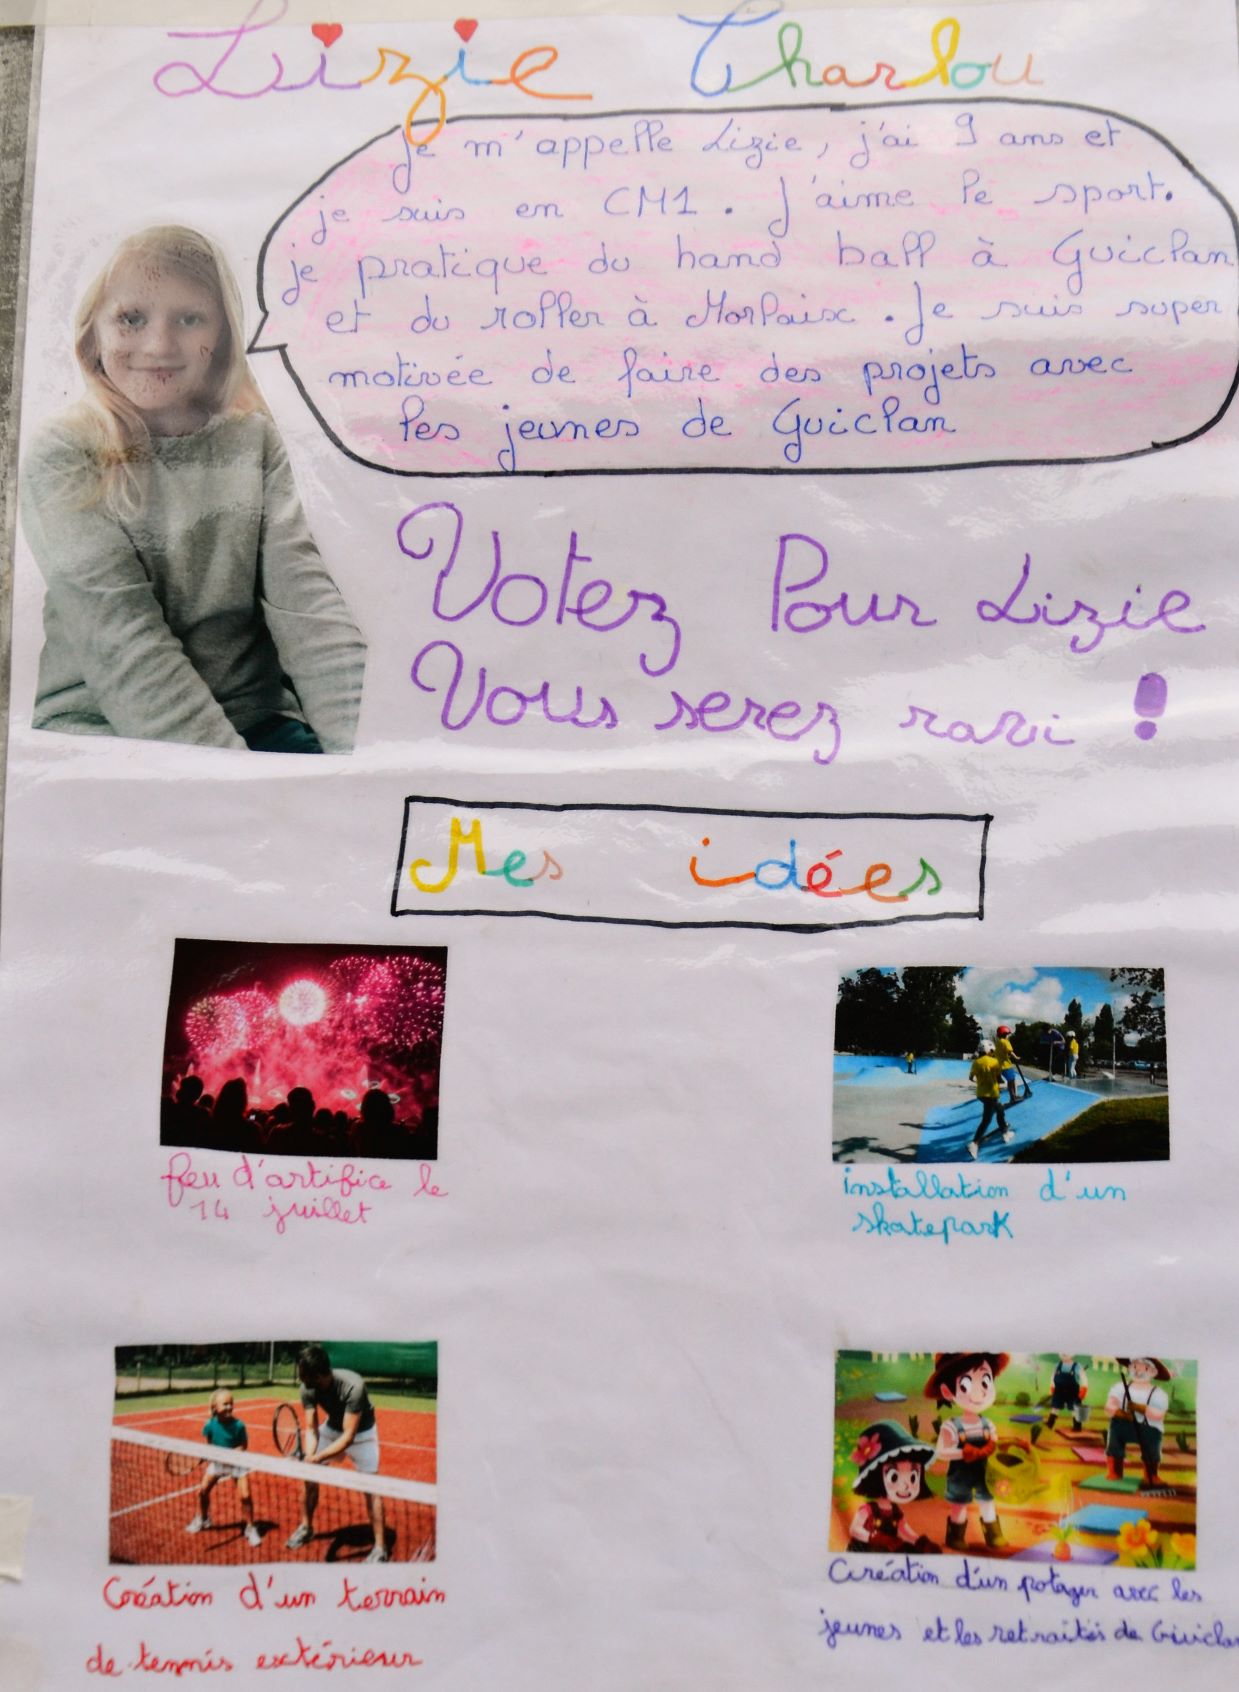 Lizie Charlou
je m'appelle Lizie, j'ai 9 ans et
je suis en CM1. J'aime le sport.
je pratique du hand ball à Guiclan
et du roller à Morlaix. Je suis super
motivée de faire des projets avec
les jeunes de Guiclan
Votez Pour Lizie
Vous serez ravi !
Mes idées
feu d'artifice le
14 juillet
installation d'un
skatepark
Création d'un terrain
de tennis extérieur
Création d'un potager avec les
jeunes et les retraités de Guiclan